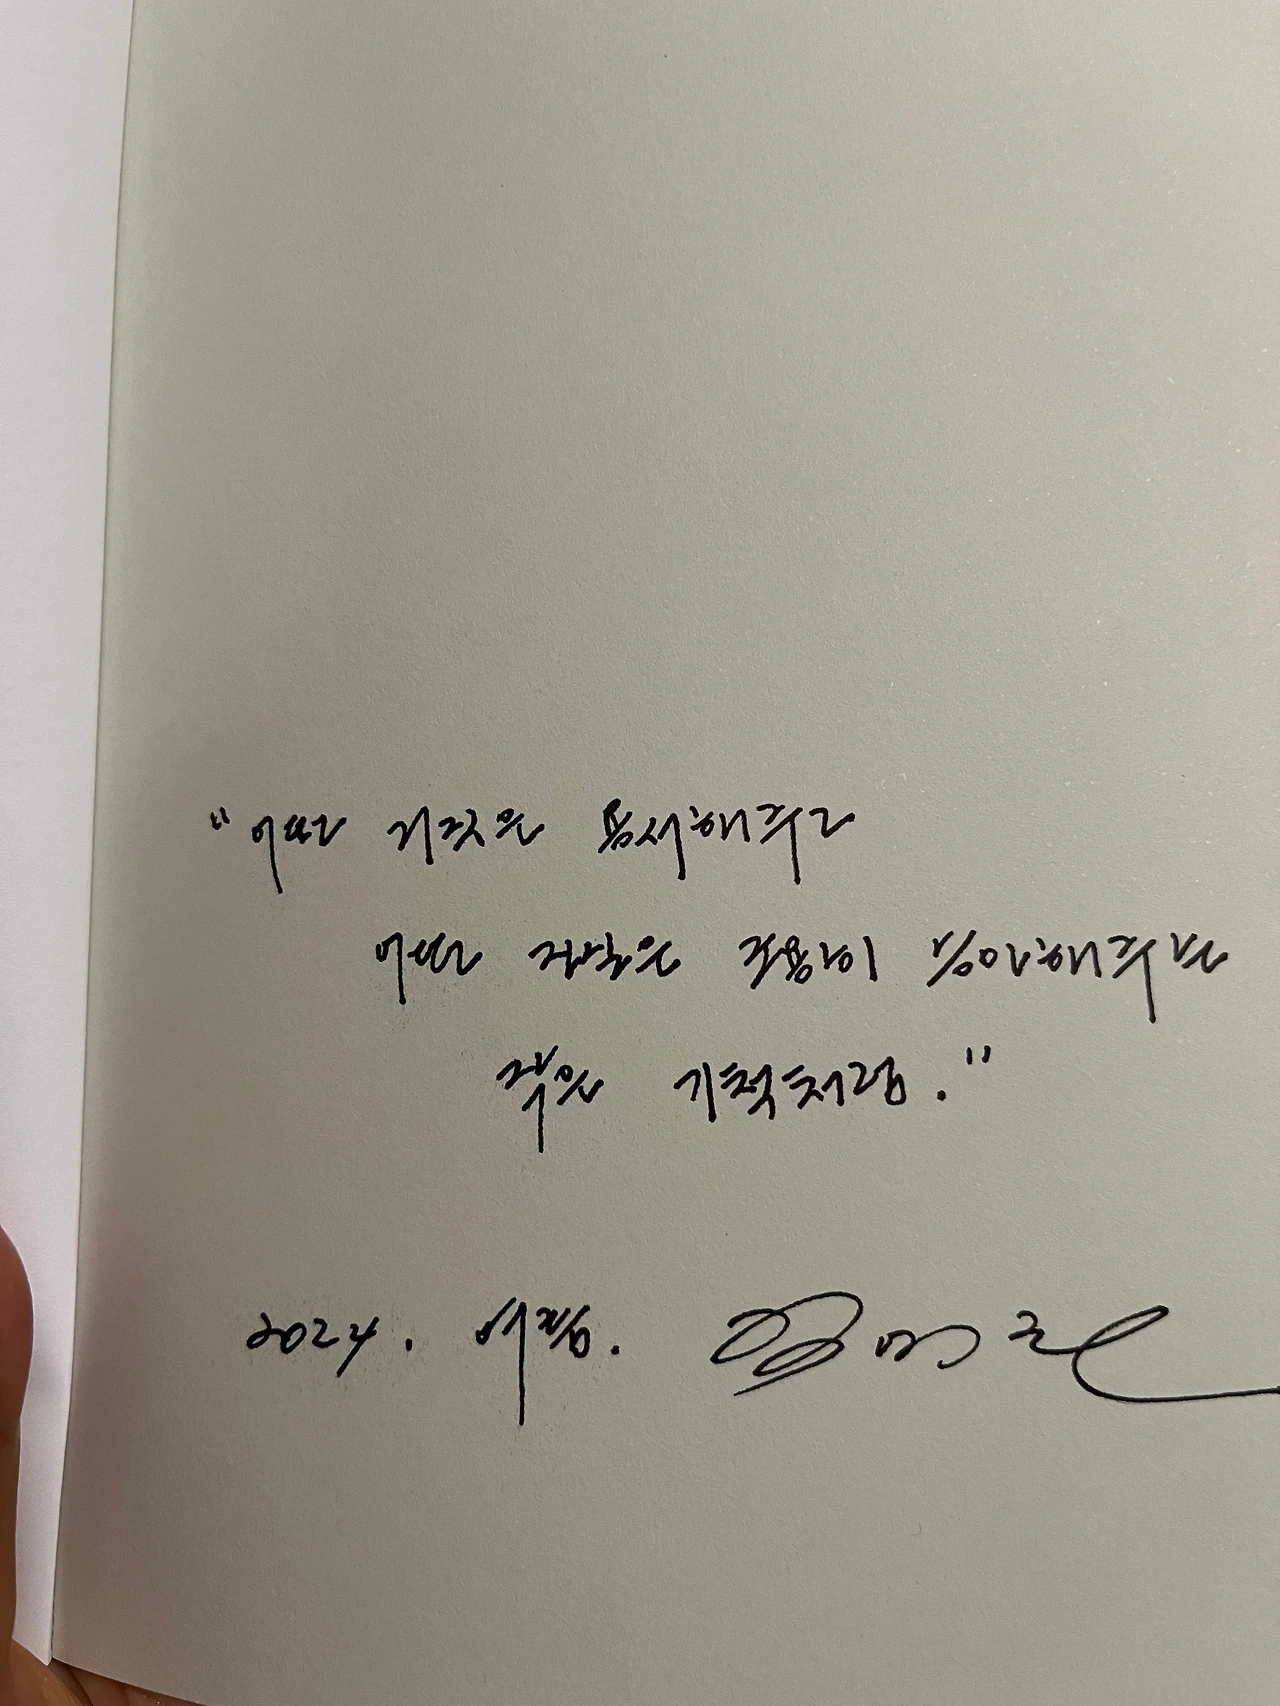 "어떤 거짓은 용서해주고
어떤 진실은 조용히 승인해주는
작은 기척처럼."
2024. 여름.